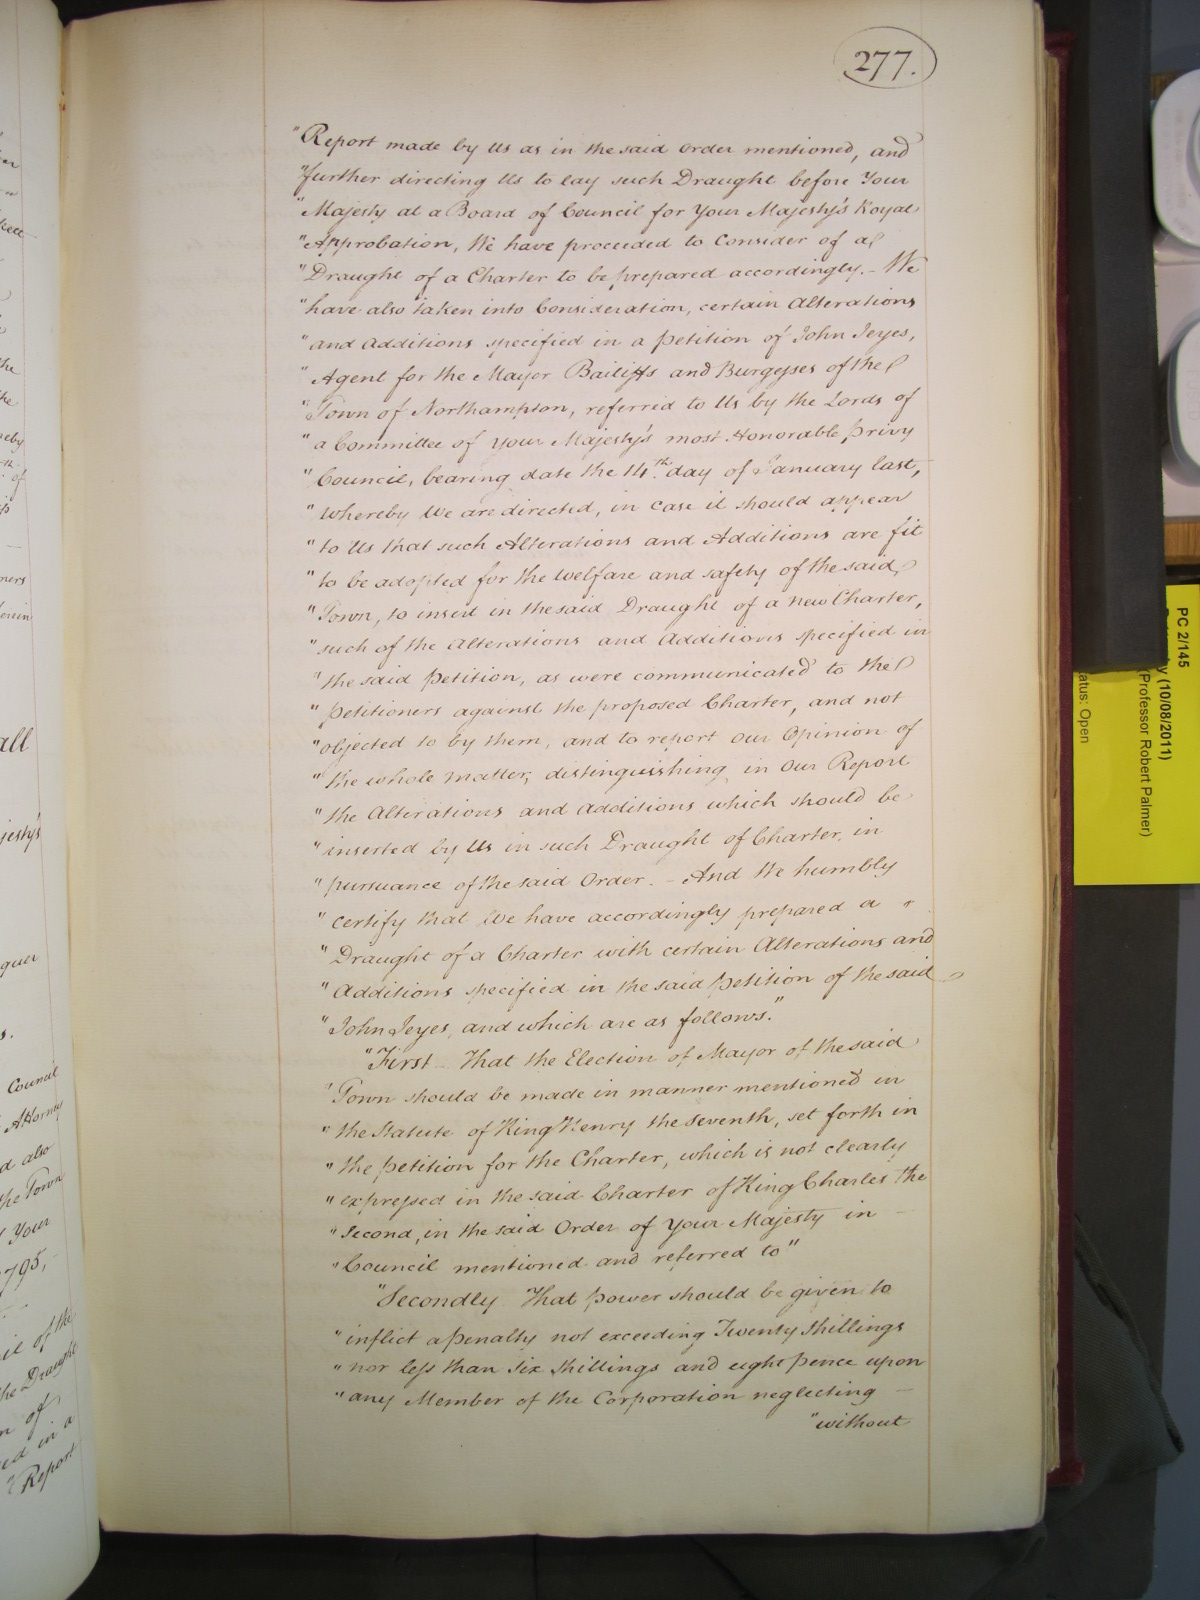 277.
"Report made by Us as in the said Order mentioned, and
"further directing Us to lay such Draught before Your
"Majesty at a Board of Council for Your Majesty's Royal
"Approbation, We have proceeded to Consider of a
"Draught of a Charter to be prepared accordingly. – We
"have also taken into Consideration, certain Alterations
"and Additions specified in a Petition of John Jeyes,
"Agent for the Mayor Bailiffs and Burgesses of the
"Town of Northampton, referred to Us by the Lords of
"a Committee of Your Majesty's most Honorable privy
"Council, bearing date the 14th. day of January last,
"whereby We are directed, in case it should appear
"to Us that such Alterations and Additions are fit
"to be adopted for the Welfare and safety of the said
"Town, to insert in the said Draught of a new Charter,
"such of the Alterations and Additions specified in
"the said Petition, as were communicated to the
"Petitioners against the proposed Charter, and not
"objected to by them, and to report our Opinion of
"the whole matter, distinguishing in Our Report
"the Alterations and Additions which should be
"inserted by Us in such Draught of Charter, in
"pursuance of the said Order. – And We humbly
"certify that We have accordingly prepared a
"Draught of a Charter with certain Alterations and
"Additions specified in the said Petition of the said
"John Jeyes, and which are as follows."
"First – That the Election of Mayor of the said
"Town should be made in manner mentioned in
"the Statute of King Henry the Seventh, set forth in
"the Petition for the Charter, which is not clearly
"expressed in the said Charter of King Charles the
"Second, in the said Order of Your Majesty in –
"Council mentioned and referred to"
"Secondly That power should be given to
"inflict a Penalty not exceeding Twenty Shillings
"nor less than Six Shillings and eight pence upon
"any Member of the Corporation neglecting –
"without
all
jesty's
quer
s.
Council
Attorney
d also
the Town
Your
795,
il of the
the Draught
n of
ed in a
"Report
PC 2/145
(10/08/2011)
Professor Robert Palmer)
atus: Open